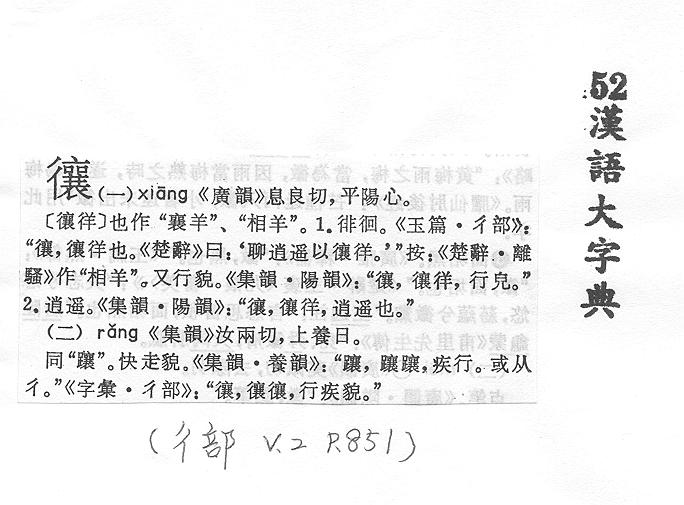 52
漢語大字典
忀(一)xiāng《廣韻》息良切，平陽心。
〔忀徉〕也作“襄羊”、“相羊”。1.徘徊。《玉篇·彳部》：
“忀，忀徉也。《楚辭》曰：‘聊逍遥以忀徉。’”按：《楚辭·離
騷》作“相羊”。又行貌。《集韻·陽韻》：“忀，忀徉，行皃。”
2.逍遥。《集韻·陽韻》：“忀，忀徉，逍遥也。”
(二) rǎng《集韻》汝兩切，上養日。
同“躟”。快走貌。《集韻·養韻》：“躟，躟躟，疾行。或从
彳。”《字彙·彳部》：“忀，忀忀，行疾貌。”
(彳部 V.2 P.851)